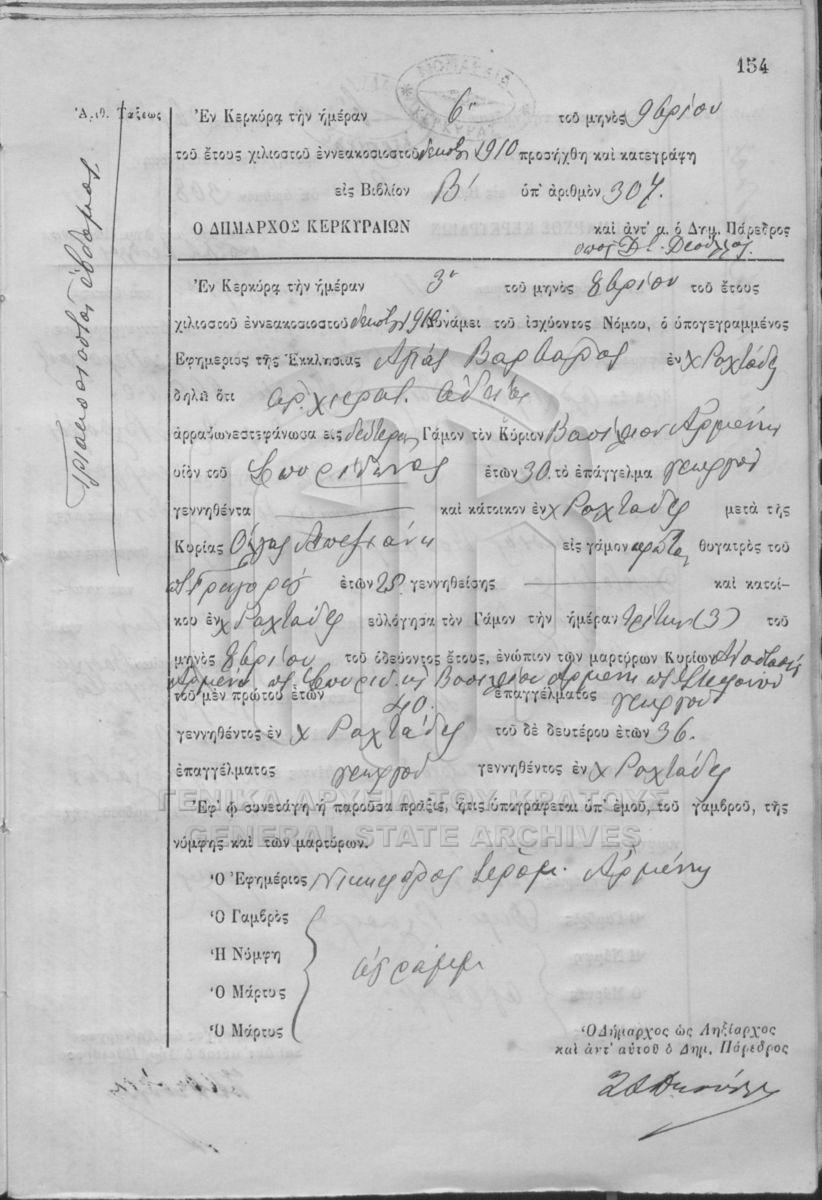 154
ΔΗΜΑΡΧΕΙΟ ΚΕΡΚΥΡΑΣ
Ἀριθ. Τάξεως
Τριακοσιοστὸς ἕβδομος
Ἐν Κερκύρᾳ τὴν ἡμέραν 6ῃ τοῦ μηνὸς 9βρίου
τοῦ ἔτους χιλιοστοῦ ἐννεακοσιοστοῦ δεκάτ 1910 προσήχθη καὶ κατεγράφη
εἰς Βιβλίον Β' ὑπ' ἀριθμὸν 307.
Ο ΔΗΜΑΡΧΟΣ ΚΕΡΚΥΡΑΙΩΝ καὶ ἀντ' α. ὁ Δημ. Πάρεδρος
Ἐν Κερκύρᾳ τὴν ἡμέραν 3ῃ τοῦ μηνὸς 8βρίου τοῦ ἔτους
χιλιοστοῦ ἐννεακοσιοστοῦ δεκάτ 1910 δυνάμει τοῦ ἰσχύοντος Νόμου, ὁ ὑπογεγραμμένος
Ἐφημέριος τῆς Ἐκκλησίας Ἁγίας Βαρβάρας ἐν χ Ραχτάδες
δηλῶ ὅτι ἀρχιερατ. ἀδείᾳ
ἀρραβωνεστεφάνωσα εἰς δεύτερον Γάμον τὸν Κύριον Βασίλειον Ἀρμένη
υἱὸν τοῦ Σπυρίδωνος ἐτῶν 30. τὸ ἐπάγγελμα γεωργοῦ
γεννηθέντα καὶ κάτοικον ἐν χ Ραχτάδες μετὰ τῆς
Κυρίας Όλγας εἰς γάμον πρῶτον θυγατρὸς τοῦ
π Γρηγορίου ἐτῶν 25 γεννηθείσης καὶ κατοί-
κου ἐν χ Ραχτάδες εὐλόγησα τὸν Γάμον τὴν ἡμέραν τρίτην (3) τοῦ
μηνὸς 8βρίου τοῦ ὁδεύοντος ἔτους, ἐνώπιον τῶν μαρτύρων Κυρίων Ἀναστασίου
Ἀρμένη π. Σπυρίδ. κ Βασιλείου Ἀρμένη π. Στεφάνου
τοῦ μὲν πρώτου ἐτῶν 40. ἐπαγγέλματος γεωργοῦ
γεννηθέντος ἐν χ Ραχτάδες τοῦ δὲ δευτέρου ἐτῶν 36.
ἐπαγγέλματος γεωργοῦ γεννηθέντος ἐν χ Ραχτάδες
ΓΕΝΙΚΑ ΑΡΧΕΙΑ ΤΟΥ ΚΡΑΤΟΥΣ
Ἐφ' ᾧ συνετάγη ἡ παροῦσα πρᾶξις, ἥτις ὑπογράφεται ὑπ' ἐμοῦ, τοῦ γαμβροῦ, τῆς
GENERAL STATE ARCHIVES
νύμφης καὶ τῶν μαρτύρων.
Ὁ Ἐφημέριος Νικηφόρος Ἱερομ. Ἀρμένης
Ὁ Γαμβρὸς
Ἡ Νύμφη
ἀγράμμ
Ὁ Μάρτυς
Ὁ Μάρτυς
Ὁ Δήμαρχος ὡς Ληξίαρχος
καὶ ἀντ' αὐτοῦ ὁ Δημ. Πάρεδρος